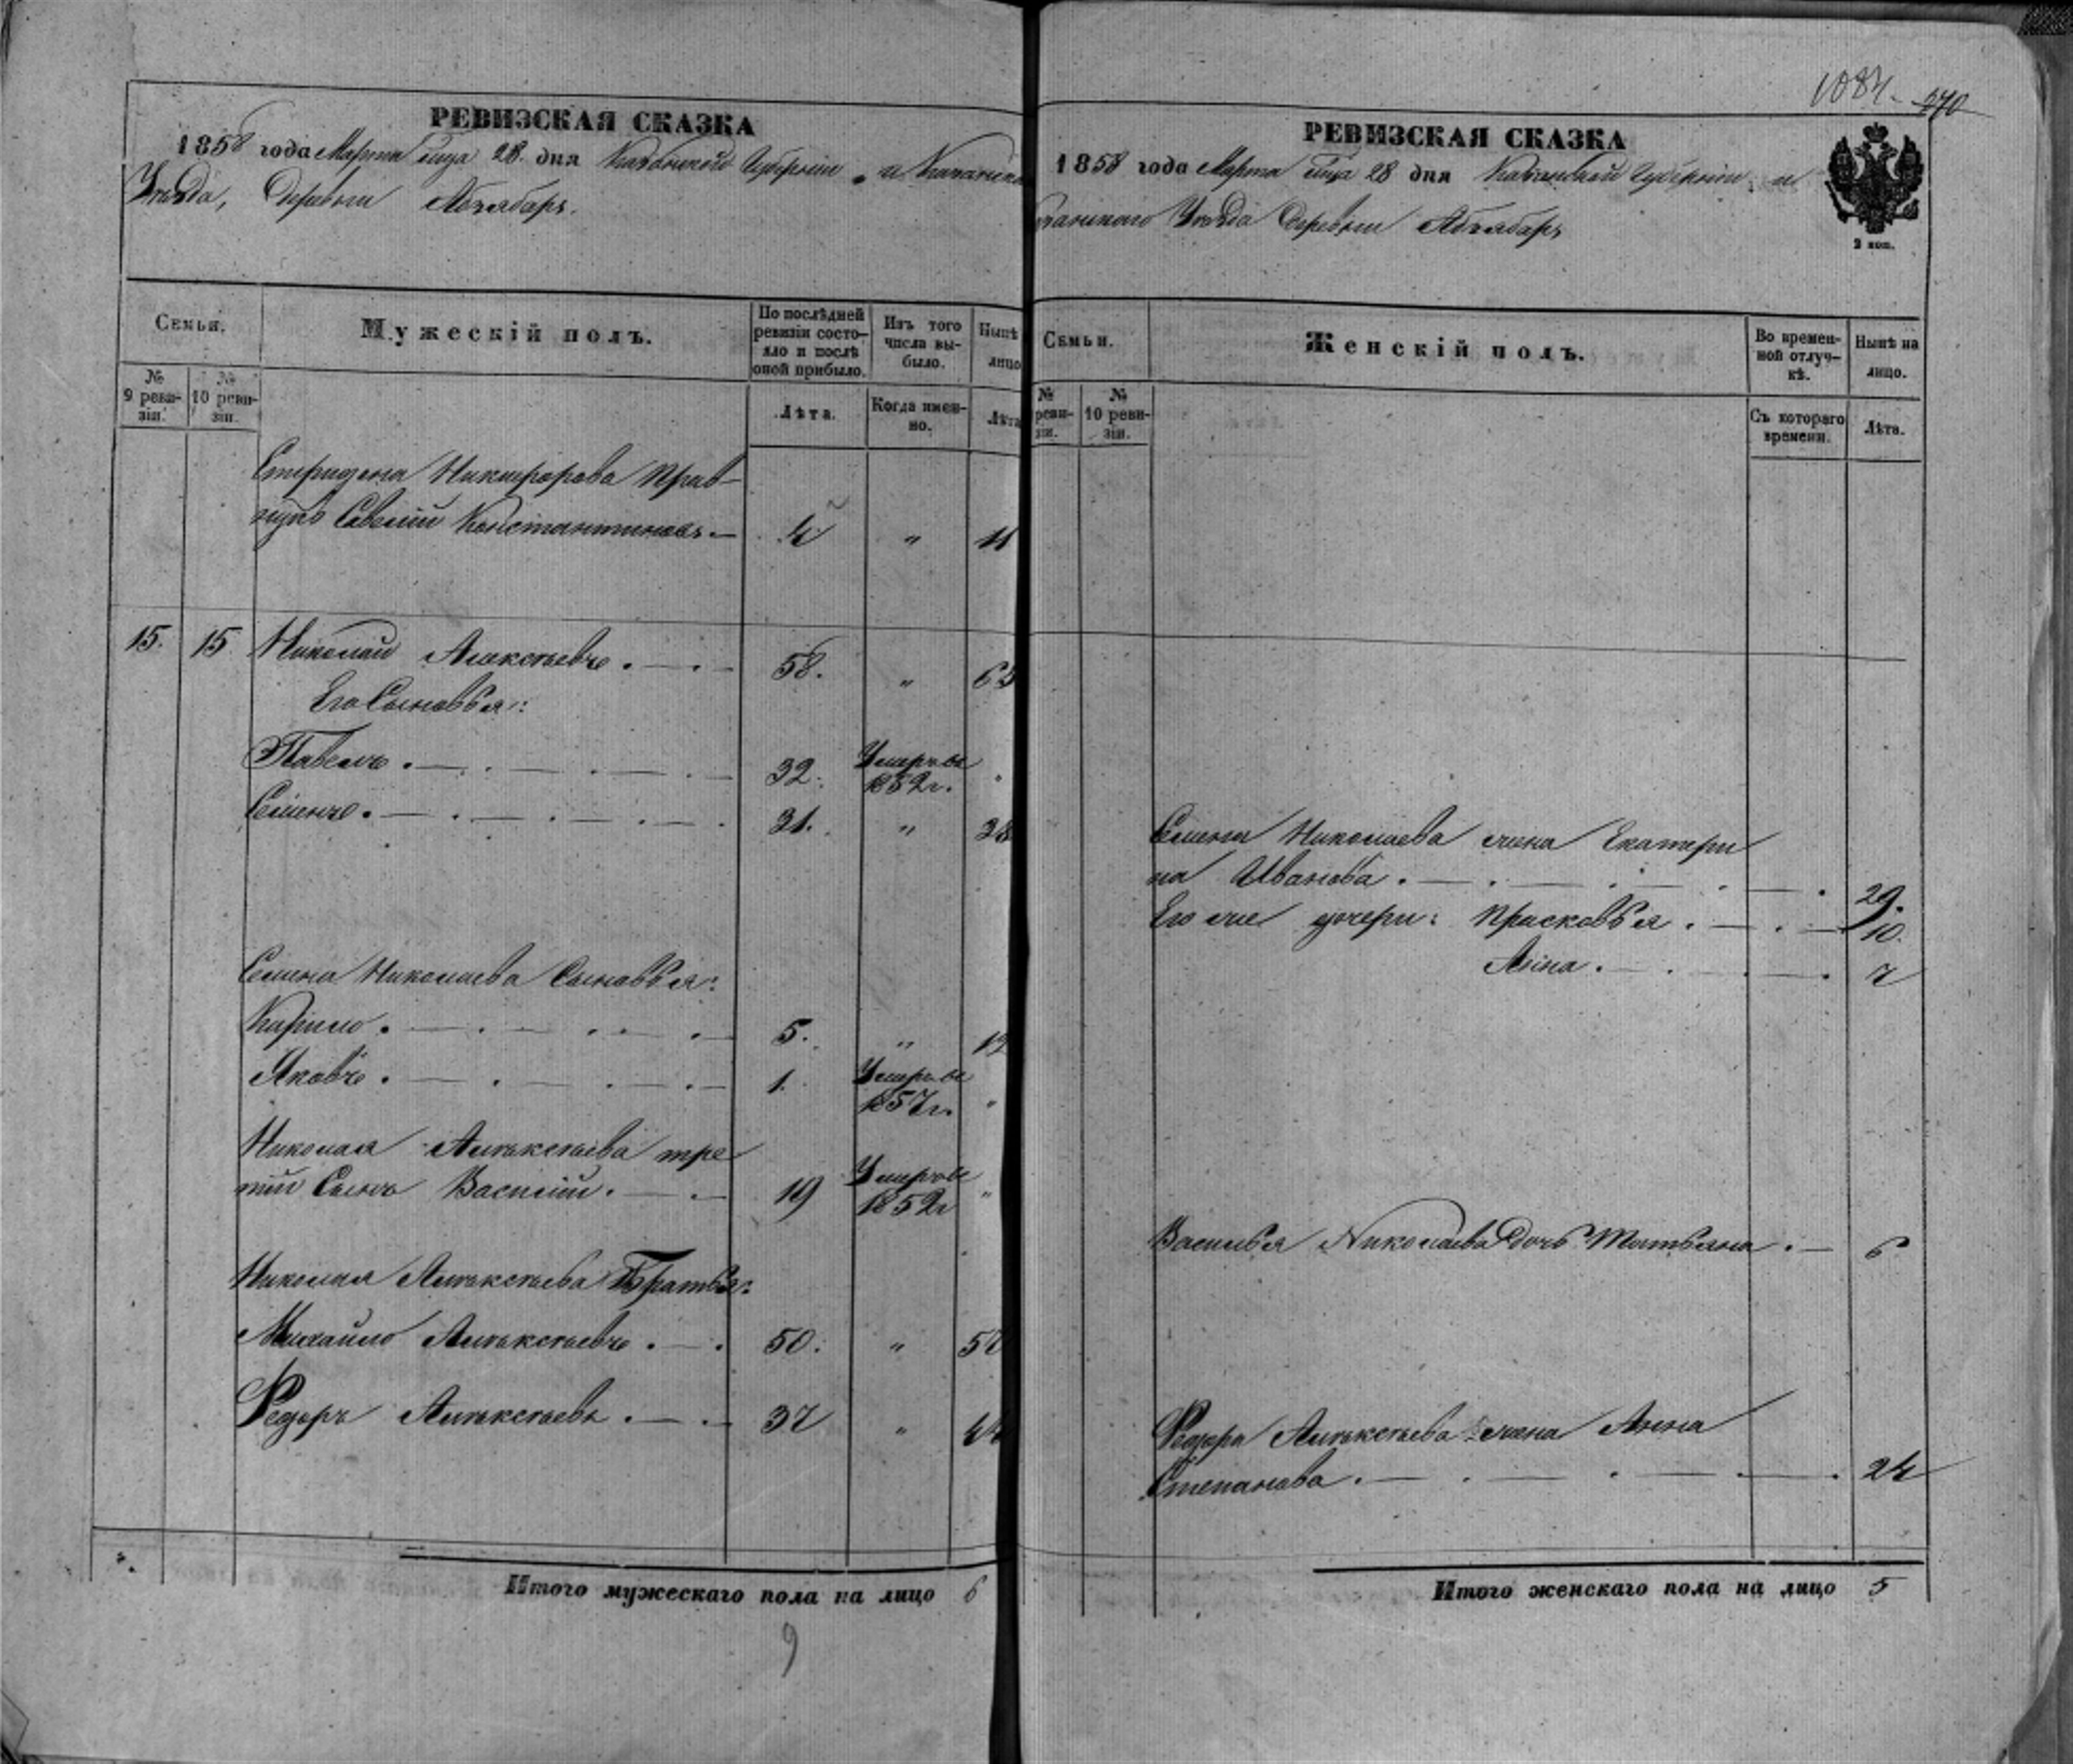 РЕВИЗСКАЯ СКАЗКА
1858 года Марта м͠ца 28. дня Казанской Губернiи, и Казанска
Уѣзда, Деревни Абзябаръ.
Семьи.
Мужескiй полъ.
По послѣдней ревизiи состояло и послѣ оной прибыло.
Изъ того числа выбыло.
Нынѣ лицо
№ 9 ревизiи.
№ 10 ревизiи.
Лѣта.
Когда именно.
Лѣта
Никифорова Прав-
нукъ Савелiй Константиновъ — 4 " 11
15. 15 Николай Алексѣевъ . — . — 58. " 65
Его Сыновья:
Павелъ . — . — . — . — 32. Умеръ въ 1852г. "
Семенъ . — . — . — . — . 31. " 38
Семена Николаева Сыновья:
Кирило . — . — . . — . — 5. " 12
Яковъ . — . — . — . — 1. Умеръ въ 1857г. "
Николая Алѣксѣева тре
тiй Сынъ Василiй . — . — 19 Умеръ въ 1852г "
Николая Алѣксѣева Братья:
Михайло Алѣксѣевъ . — . 50. " 57
Федоръ Алѣксѣевъ . — . — 37 " 44
Итого мужескаго пола на лицо 6
9
1084. 270
РЕВИЗСКАЯ СКАЗКА
1858 года Марта м͠ца 28 дня Казанской Губернiи, и
занскаго Уѣзда Деревни Абзябаръ
2 коп.
Семьи.
Женскiй полъ.
Во временной отлучкѣ.
Нынѣ на лицо.
№ реви-зiи.
№ 10 ревизiи.
Съ котораго времени.
Лѣта.
Семена Николаева жена Екатери
на Иванова . — . — . — . — . 29.
Его же дочери: Прасковья . — . — 10.
Анна . — . — . — . 7
Василья Николаева дочь Татьяна . — 6
Федора Алѣксѣева жена Анна
Степанова . — . — . — . — . 24
Итого женскаго пола на лицо 5